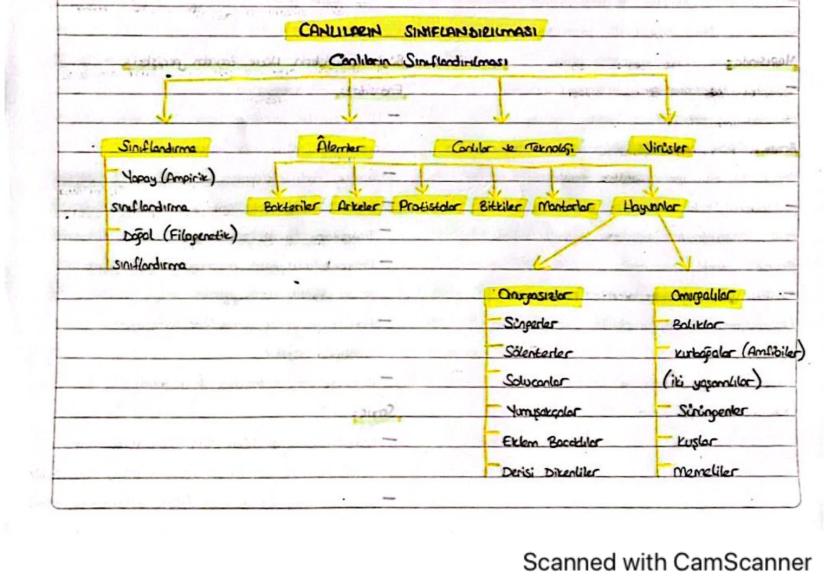 CANLILARIN SINIFLANDIRILMASI
Canlıların Sınıflandırılması
Sınıflandırma Âlemler Canlılar ve Teknoloji Virüsler
Yapay (Ampirik)
sınıflandırma
Bakteriler Arkeler Protistalar Bitkiler Mantarlar Hayvanlar
Doğal (Filogenetik)
sınıflandırma
Omurgasızlar Omurgalılar
Süngerler Balıklar
Sölenterler Kurbağalar (Amfibiler)
Solucanlar (iki yaşamlılar)
Yumuşakçalar Sürüngenler
Eklem Bacaklılar Kuşlar
Derisi Dikenliler Memeliler
Scanned with CamScanner